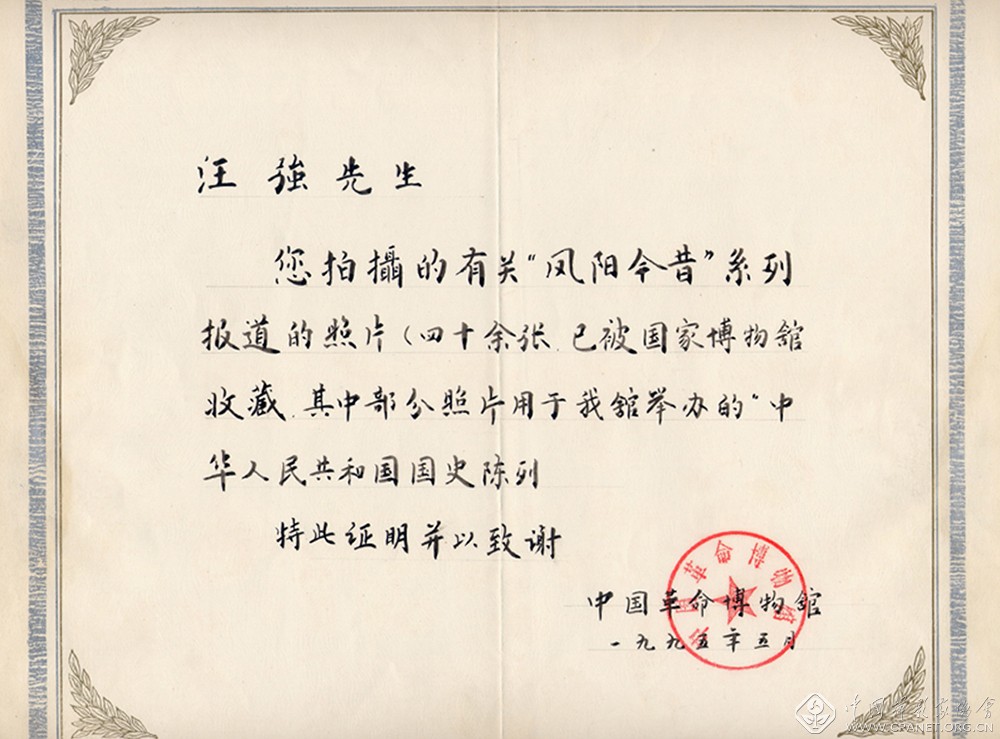 汪強先生
您拍攝的有关“凤阳今昔”系列
报道的照片（四十余张.已被国家博物舘
收藏.其中部分照片用于我舘举办的“中
华人民共和国国史陈列
特此证明并以致谢
中国革命博物舘
一九九五年五月
中国革命博物馆
中国艺术家协会
WWW.CPANET.ORG.CN